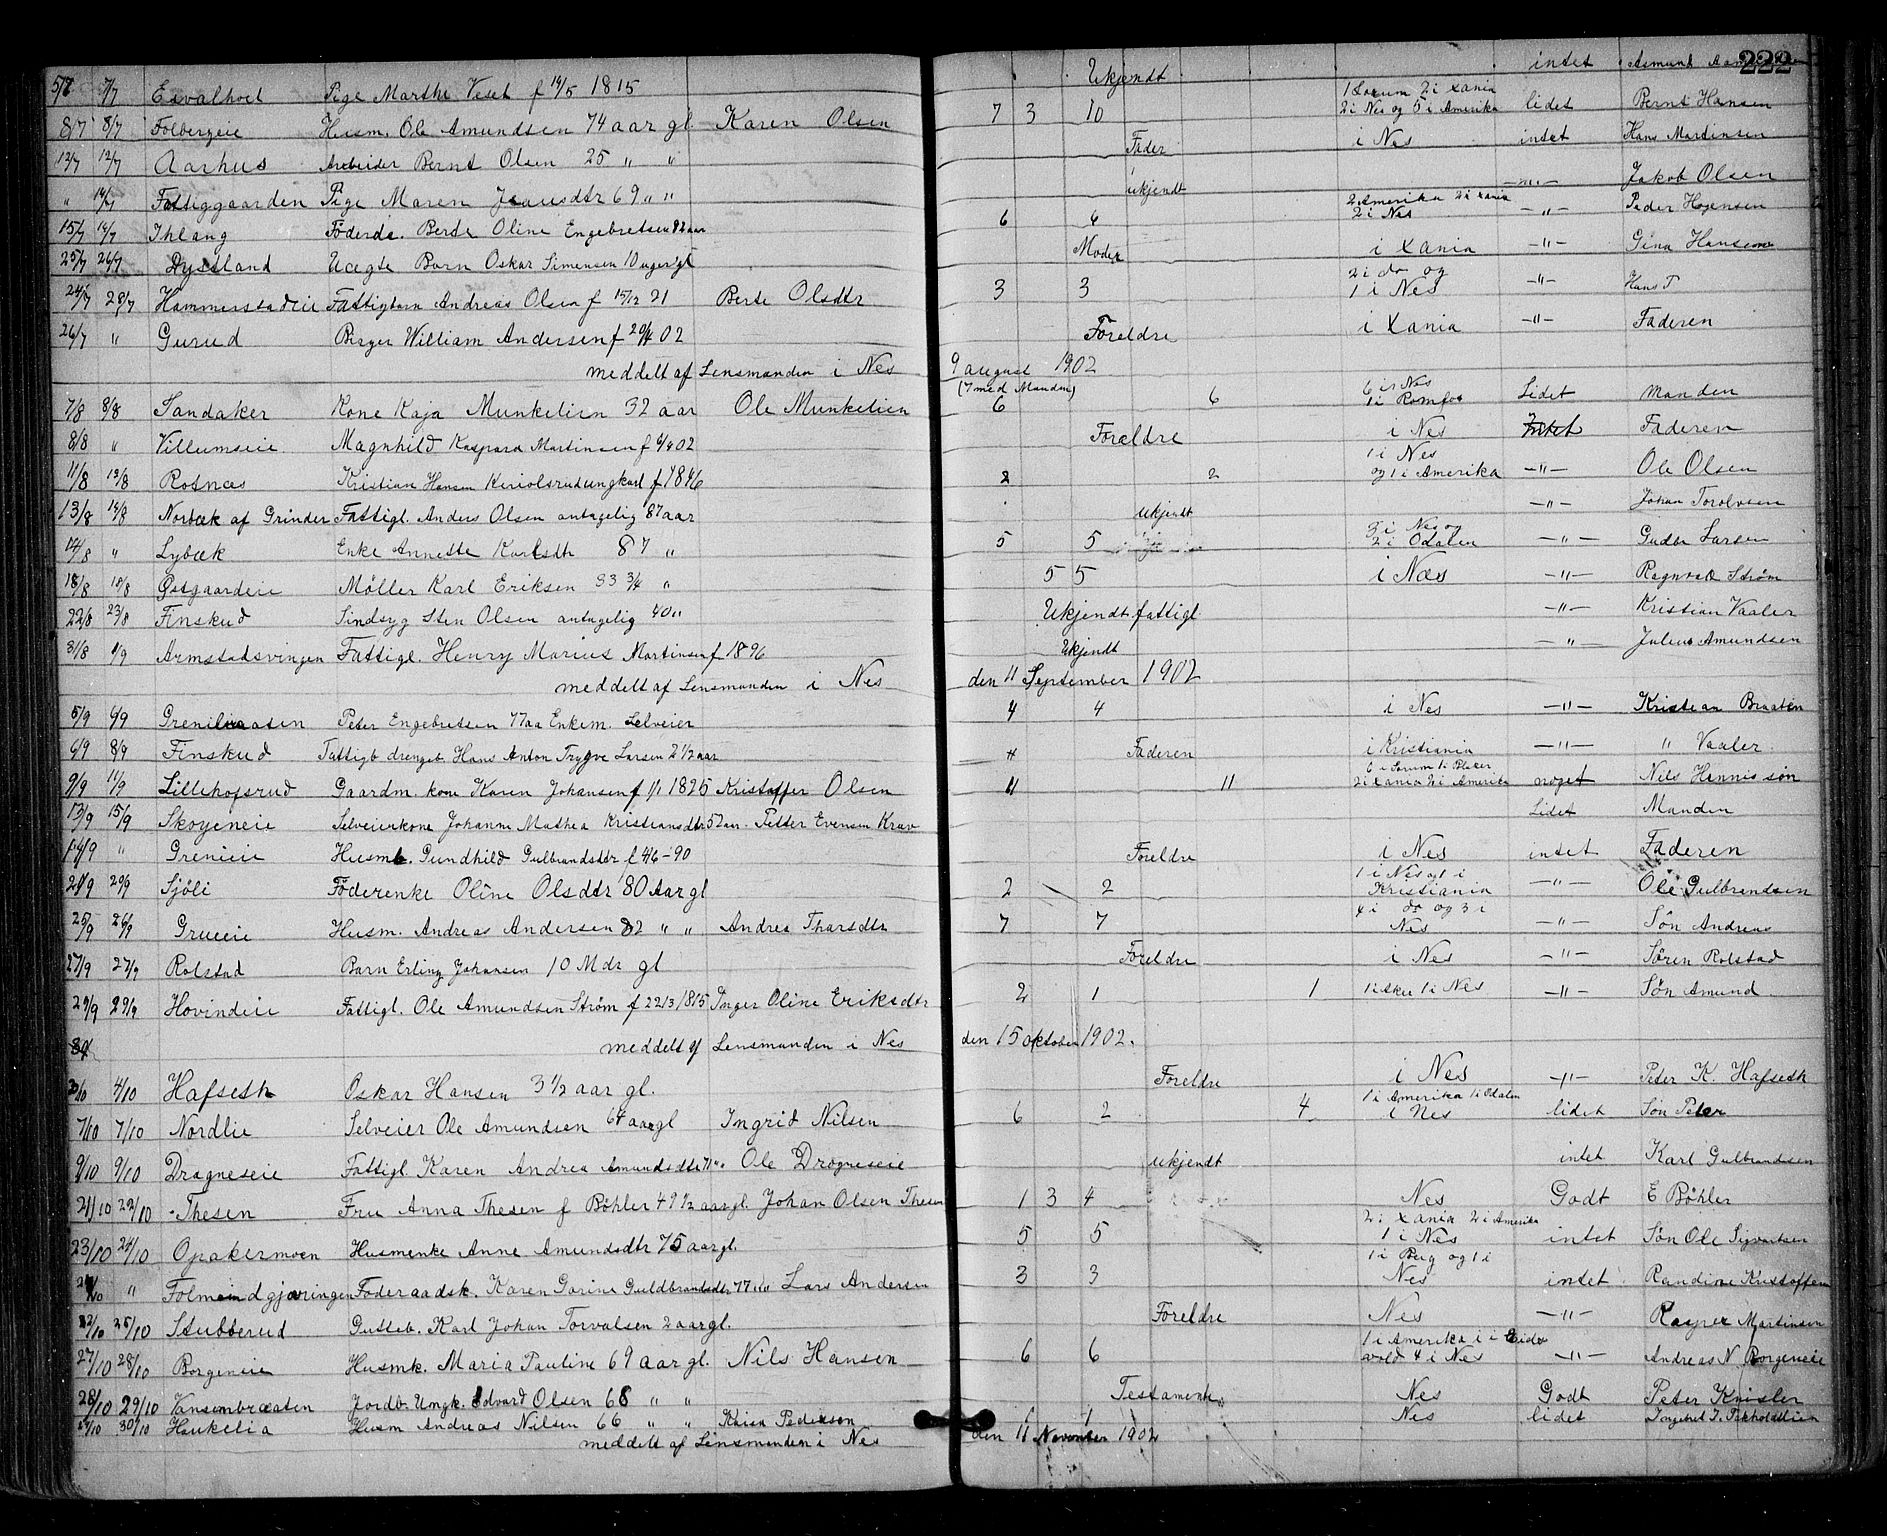 222
5/7 7/7 Esvalhoel Pige Marthe Veset f 14/5 1815 Ukjendt intet Asmund
8/7 8/7 Folbergeie Husm. Ole Amundsen 74 aar gl Karen Olsen 7 3 10 1 Sorum 2 i Xania 2 i Nes og 5 i Amerika lidet Bernt Hansen
12/7 12/7 Aarhus Arbeider Bernt Olsen 25 " " Fader i Nes intet Hans Martinsen
" 14/7 Fattiggaarden Pige Maren 69 " " Ukjendt —"— Jakob Olsen
15/7 Ihlang Föderds. Berte Oline Engebretsen 82 aar 6 6 2 Amerika 2 i Xania 2 i Nes —"— Peder Hogensen
25/7 26/7 Dyssland Uægte Barn Oskar Simensen 10 uger gl Moder i Xania —"— Gina Hansen
24/7 28/7 Hammerstadeie Fattigbarn Andreas Olsen f 15/12 21 Berte Olsdtr 3 3 2 i do og 1 i Nes —"— Hans P
26/7 " Gurud Birger William Andersen f 20/4 02 Foreldre i Xania —"— Faderen
meddelt af Lensmanden i Nes 9 august 1902
7/8 8/8 Sandaker Kone Kaja Munkelien 32 aar Ole Munkelien (7 med Manden) 6 6 6 i Nes 1 i Romfor Lidet Manden
8/8 " Villumseie Magnhild Kaspara Martinsen f 6/4 02 Foreldre i Nes Intet Faderen
11/8 13/8 Rotnæs Kristian Hansen ungkarl f 1846 2 2 1 i Nes og 1 i Amerika —"— Ole Olsen
13/8 14/8 Norbæk af Grinder Fattigl. Anders Olsen antagelig 87 aar Ukjendt —"— Johan Torolvsen
14/8 " Lybæk Enke Annette Karlsdtr 87 " 5 5 3 i Nes og 2 i Odalen —"— Gudbr Larsen
18/8 18/8 Østgaardeie Möller Karl Eriksen 83 3/4 " 5 5 i Næs —"— Ragnvald Ström
22/8 23/8 Finskud Sindsyg Sten Olsen antagelig 40 " Ukjendt fattigl —"— Kristian Vaaler
31/8 1/9 Armstadsvingen Fattigl. Henry Marius Martinsen f 1896 Ukjendt —"— Julius Amundsen
meddelt af Lensmanden i Nes den 11 September 1902
5/9 6/9 Grenilsaasen Peter Engebretsen 77 aa Enkem. Selveier 4 4 i Nes —"— Kristian Braaten
6/9 8/9 Finskud Fattigb drengeb Hans Anton Trygve Larsen 2 1/2 aar Faderen i Kristiania —"— " Vaaler
9/9 11/9 Lillehofsrud Gaardm. kone Karen Johansen f 1/1 1825 Kristoffer Olsen 11 11 6 i Sorum 1 i Blaker 2 i Xania 2 i Amerika noget Nils Hennis sön
13/9 15/9 Skogeneie Selveierkone Johanne Mathea Kristiansdtr 52 aar. Petter Evensen Krav Lidet Manden
14/9 " Greneie Husmb. Gundhild Gulbrandsdtr f 4/6-90 Foreldre i Nes intet Faderen
21/9 29/9 Sjöli Föderenke Oline Olsdtr 80 Aar gl 2 2 1 i Nes og 1 i Kristiania —"— Ole Gulbrandsen
25/9 26/9 Grueeie Husm. Andreas Andersen 82 " " Andrea Tharsdtr 7 7 4 i do og 3 i Nes —"— Sön Andreas
27/9 27/9 Rolstad Barn Erling Johansen 10 Mdr gl Foreldre i Nes —"— Sören Rolstad
29/9 29/9 Hovindeie Fattigl. Ole Amundsen Ström f 22/3/1815 Inger Oline Eriksdtr 2 1 1 1 i Aker 1 i Nes —"— Sön Amund
meddelt af Lensmanden i Nes den 15 oktober 1902.
4/10 Hafseth Oskar Hansen 3 1/2 aar gl. Foreldre i Nes —"— Peter K. Hafseth
7/10 7/10 Nordlie Selveier Ole Amundsen 64 aar gl Ingrid Nilsen 6 2 4 1 i Amerika 1 i Odalen i Nes lidet Sön Peter
9/10 9/10 Dragneseie Fattigl. Karen Andrea Amundsdtr 71 " Ole Drogneseie Ukjendt intet Karl Gulbrandsen
21/10 22/10 Thesen Fru Anna Thesen f Böhler 49 1/2 aar gl. Johan Olsen Thesen 1 3 4 Nes Godt E Böhler
23/10 24/10 Opakermoen Husmenke Anne Amundsdtr 75 aar gl. 5 5 2 i Xania 2 i Amerika 1 i Nes intet Sön Ole Sigvartsen
24/10 " Folmeindgjæringen Föderaadsk. Karen Gorine Guldbrandsdtr 77 aar Lars Andersen 3 3 1 i Berg og 1 i Nes intet Randine Kristoffersen
22/10 25/10 Stubberud Gutteb. Karl Johan Torvalsen 2 aar gl. Foreldre Nes —"— Kasper Martinsen
27/10 28/10 Borgeneie Husmk. Maria Pauline 69 aar gl. Nils Hansen 6 6 1 i Amerika 1 i Eidsvold 4 i Nes —"— Andreas N. Borgeneie
28/10 29/10 Vansenbraaten Jordbr. Ungk. Edvard Olsen 68 " " Testamente Nes Godt Peter Knisler
29/10 30/10 Haukelia Husm Andreas Nilsen 66 " " Kaisa Pederson 1 1 Nes lidet
meddelt af Lensmanden i Nes den 11 November 1902